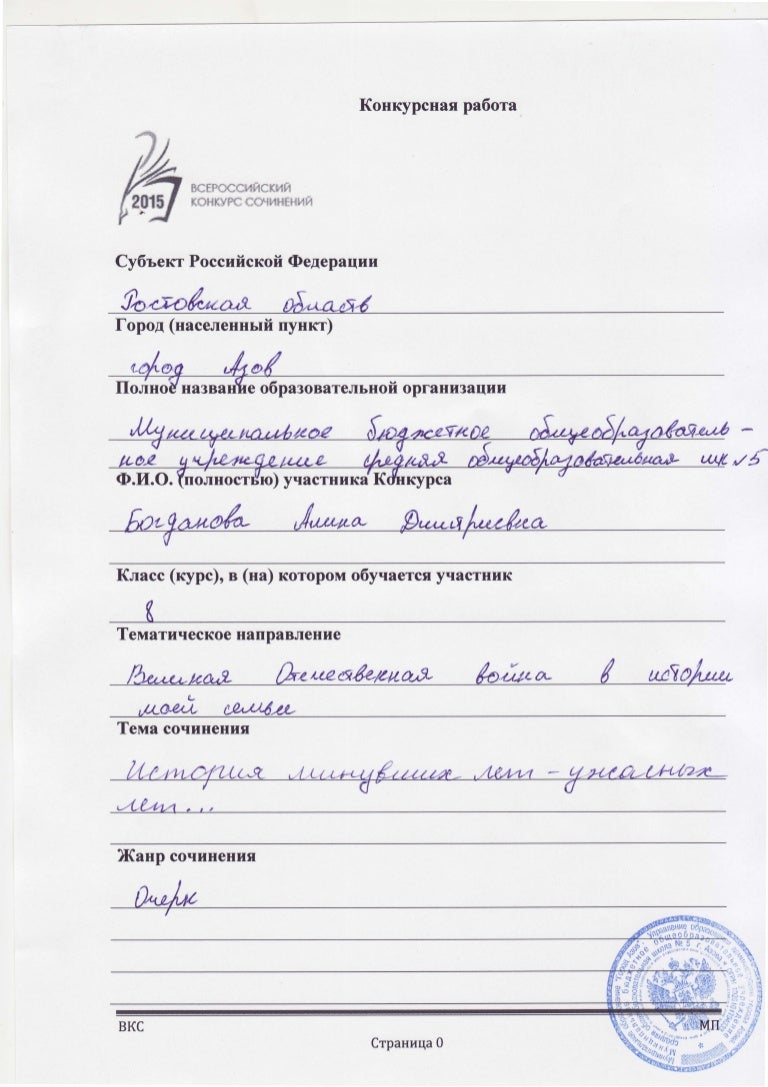 Конкурсная работа
2015
ВСЕРОССИЙСКИЙ
КОНКУРС СОЧИНЕНИЙ
Субъект Российской Федерации
Ростовская область
Город (населенный пункт)
город Азов
Полное название образовательной организации
Муниципальное бюджетное общеобразователь-
ное учреждение средняя общеобразовательная шк №5
Ф.И.О. (полностью) участника Конкурса
Богданова Алина Дмитриевна
Класс (курс), в (на) котором обучается участник
8
Тематическое направление
Великая Отечественная война в истории
моей семьи
Тема сочинения
История минувших лет – ужасных
лет...
Жанр сочинения
Очерк
ВКС
МП
Страница 0